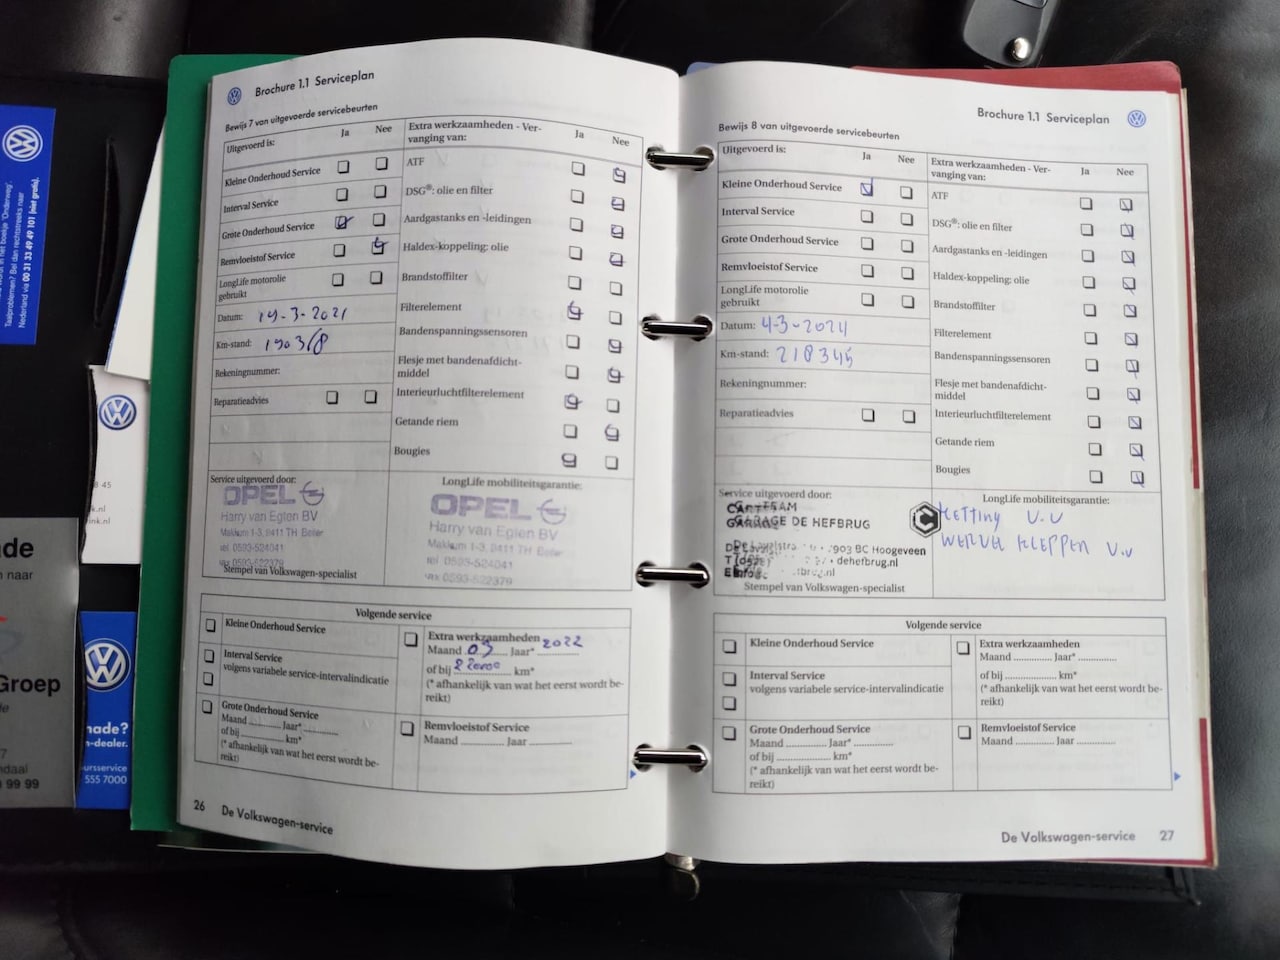 Taalproblemen? Bel dan rechtstreeks naar
Nederland via 00 31 33 49 49 101 (niet gratis).
Groep
99 99
nade?
n-dealer.
ursservice
555 7000
Brochure 1.1 Serviceplan
Bewijs 7 van uitgevoerde servicebeurten
Uitgevoerd is: Ja Nee
Kleine Onderhoud Service
Interval Service
Grote Onderhoud Service
Remvloeistof Service
LongLife motorolie
gebruikt
Datum: 19-3-2021
Km-stand: 190318
Rekeningnummer:
Reparatieadvies
Extra werkzaamheden - Ver-
vanging van: Ja Nee
ATF
DSG®: olie en filter
Aardgastanks en -leidingen
Haldex-koppeling: olie
Brandstoffilter
Filterelement
Bandenspanningssensoren
Flesje met bandenafdicht-
middel
Interieurluchtfilterelement
Getande riem
Bougies
Service uitgevoerd door:
OPEL
Harry van Eglen BV
Makkum 1-3, 9411 TH Beiler
tel. 0593-524041
fax 0593-522379
Stempel van Volkswagen-specialist
LongLife mobiliteitsgarantie:
OPEL
Harry van Eglen BV
Makkum 1-3, 9411 TH Beiler
tel. 0593-524041
fax 0593-522379
Volgende service
Kleine Onderhoud Service
Interval Service
volgens variabele service-intervalindicatie
Grote Onderhoud Service
Maand ............ Jaar* ............
of bij ............ km*
(* afhankelijk van wat het eerst wordt be-
reikt)
Extra werkzaamheden
Maand 03 Jaar* 2022
of bij 22000 km*
(* afhankelijk van wat het eerst wordt be-
reikt)
Remvloeistof Service
Maand ............ Jaar ............
26 De Volkswagen-service
Brochure 1.1 Serviceplan
Bewijs 8 van uitgevoerde servicebeurten
Uitgevoerd is: Ja Nee
Kleine Onderhoud Service
Interval Service
Grote Onderhoud Service
Remvloeistof Service
LongLife motorolie
gebruikt
Datum: 4-3-2024
Km-stand: 218345
Rekeningnummer:
Reparatieadvies
Extra werkzaamheden - Ver-
vanging van: Ja Nee
ATF
DSG®: olie en filter
Aardgastanks en -leidingen
Haldex-koppeling: olie
Brandstoffilter
Filterelement
Bandenspanningssensoren
Flesje met bandenafdicht-
middel
Interieurluchtfilterelement
Getande riem
Bougies
Service uitgevoerd door:
GARAGE DE HEFBRUG
7903 BC Hoogeveen
dehefbrug.nl
Stempel van Volkswagen-specialist
LongLife mobiliteitsgarantie:
KETTING V.V
WERVEL KLEPPEN V.V
Volgende service
Kleine Onderhoud Service
Interval Service
volgens variabele service-intervalindicatie
Grote Onderhoud Service
Maand ............ Jaar* ............
of bij ............ km*
(* afhankelijk van wat het eerst wordt be-
reikt)
Extra werkzaamheden
Maand ............ Jaar* ............
of bij ............ km*
(* afhankelijk van wat het eerst wordt be-
reikt)
Remvloeistof Service
Maand ............ Jaar ............
De Volkswagen-service 27